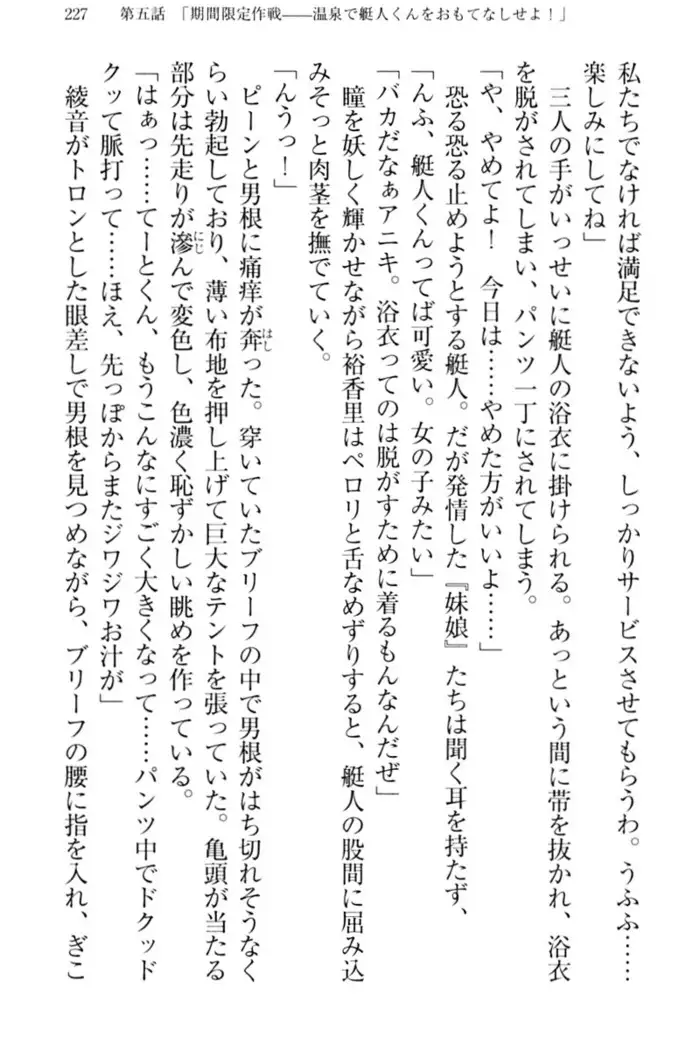 227　第五話 「期間限定作戦――温泉で艇人くんをおもてなしせよ!」
私たちでなければ満足できないよう、しっかりサービスさせてもらうわ。うふふ……
楽しみにしてね」
三人の手がいっせいに艇人の浴衣に掛けられる。あっという間に帯を抜かれ、浴衣
を脱がされてしまい、パンツ一丁にされてしまう。
「や、やめてよ!　今日は……やめた方がいいよ……」
恐る恐る止めようとする艇人。だが発情した『妹娘』たちは聞く耳を持たず、
「んふ、艇人くんってば可愛い。女の子みたい」
「バカだなぁアニキ。浴衣ってのは脱がすために着るもんなんだぜ」
瞳を妖しく輝かせながら裕香里はペロリと舌なめずりすると、艇人の股間に屈み込
みそっと肉茎を撫でていく。
「んうっ!」
ピーンと男根に痛痒が奔った。穿いていたブリーフの中で男根がはち切れそうなく
はし
らい勃起しており、薄い布地を押し上げて巨大なテントを張っていた。亀頭が当たる
部分は先走りが滲んで変色し、色濃く恥ずかしい眺めを作っている。
にじ
「はぁっ……てーとくん、もうこんなにすごく大きくなって……パンツ中でドクッド
クッて脈打って……ほえ、先っぽからまたジワジワお汁が」
綾音がトロンとした眼差しで男根を見つめながら、ブリーフの腰に指を入れ、ぎこ